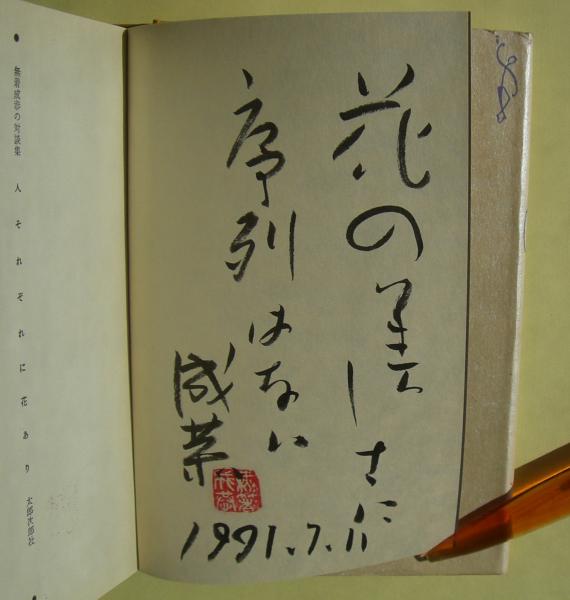 花の美しさに
序列はない
成恭
1991.7.11
無着成恭の対談集　人それぞれに花あり　太郎次郎社